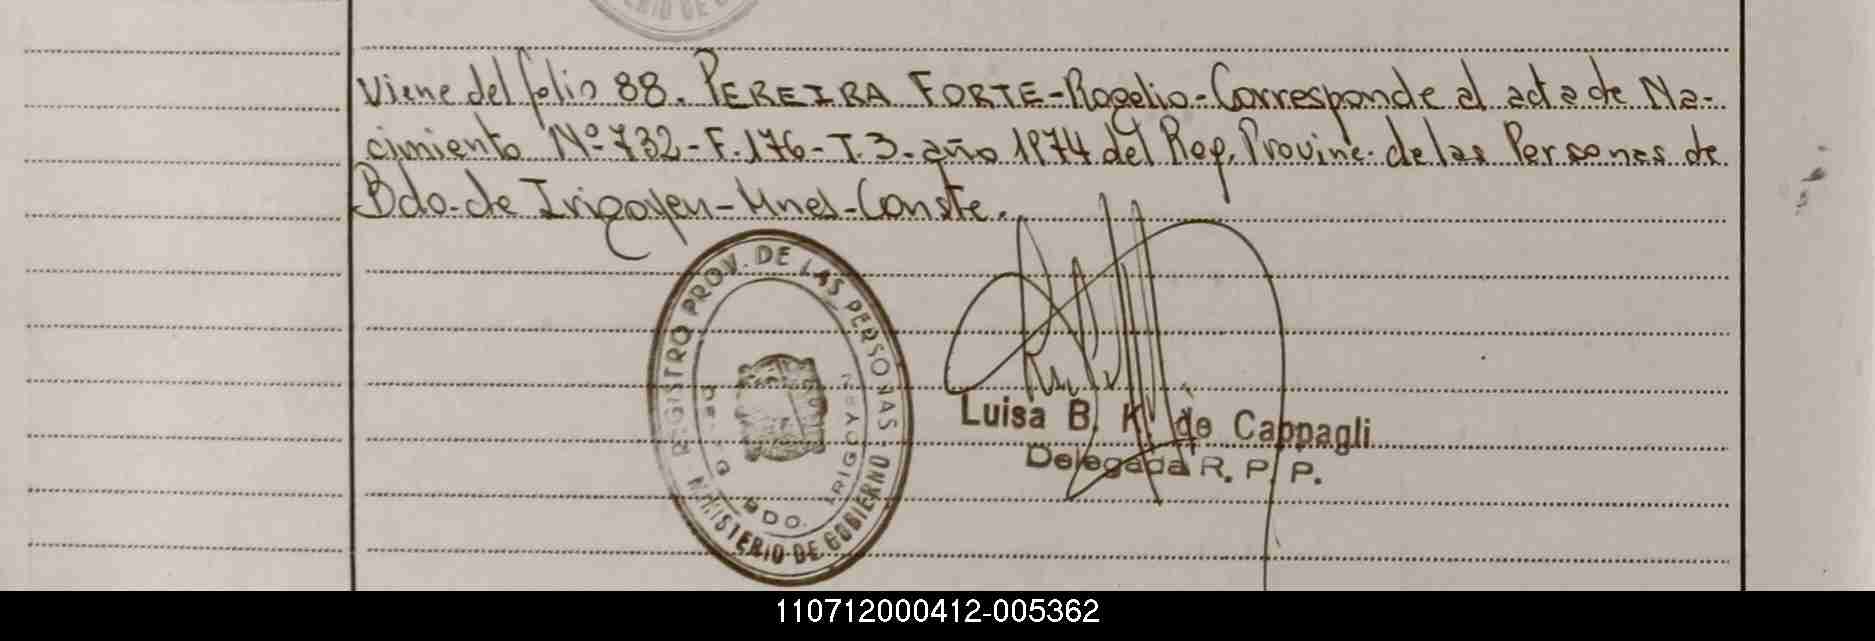 Viene del folio 88. PEREIRA FORTE-Rogelio-Corresponde al acta de Na-
cimiento Nº 732-F.176-T.3-año 1974 del Reg. Provinc. de las Personas de
Bdo. de Irigoyen-Mnes-Conste.
REGISTRO PROV. DE LAS PERSONAS
MINISTERIO DE GOBIERNO
BDO. IRIGOYEN
Luisa B. K. de Cappagli
Delegada R. P. P.
110712000412-005362